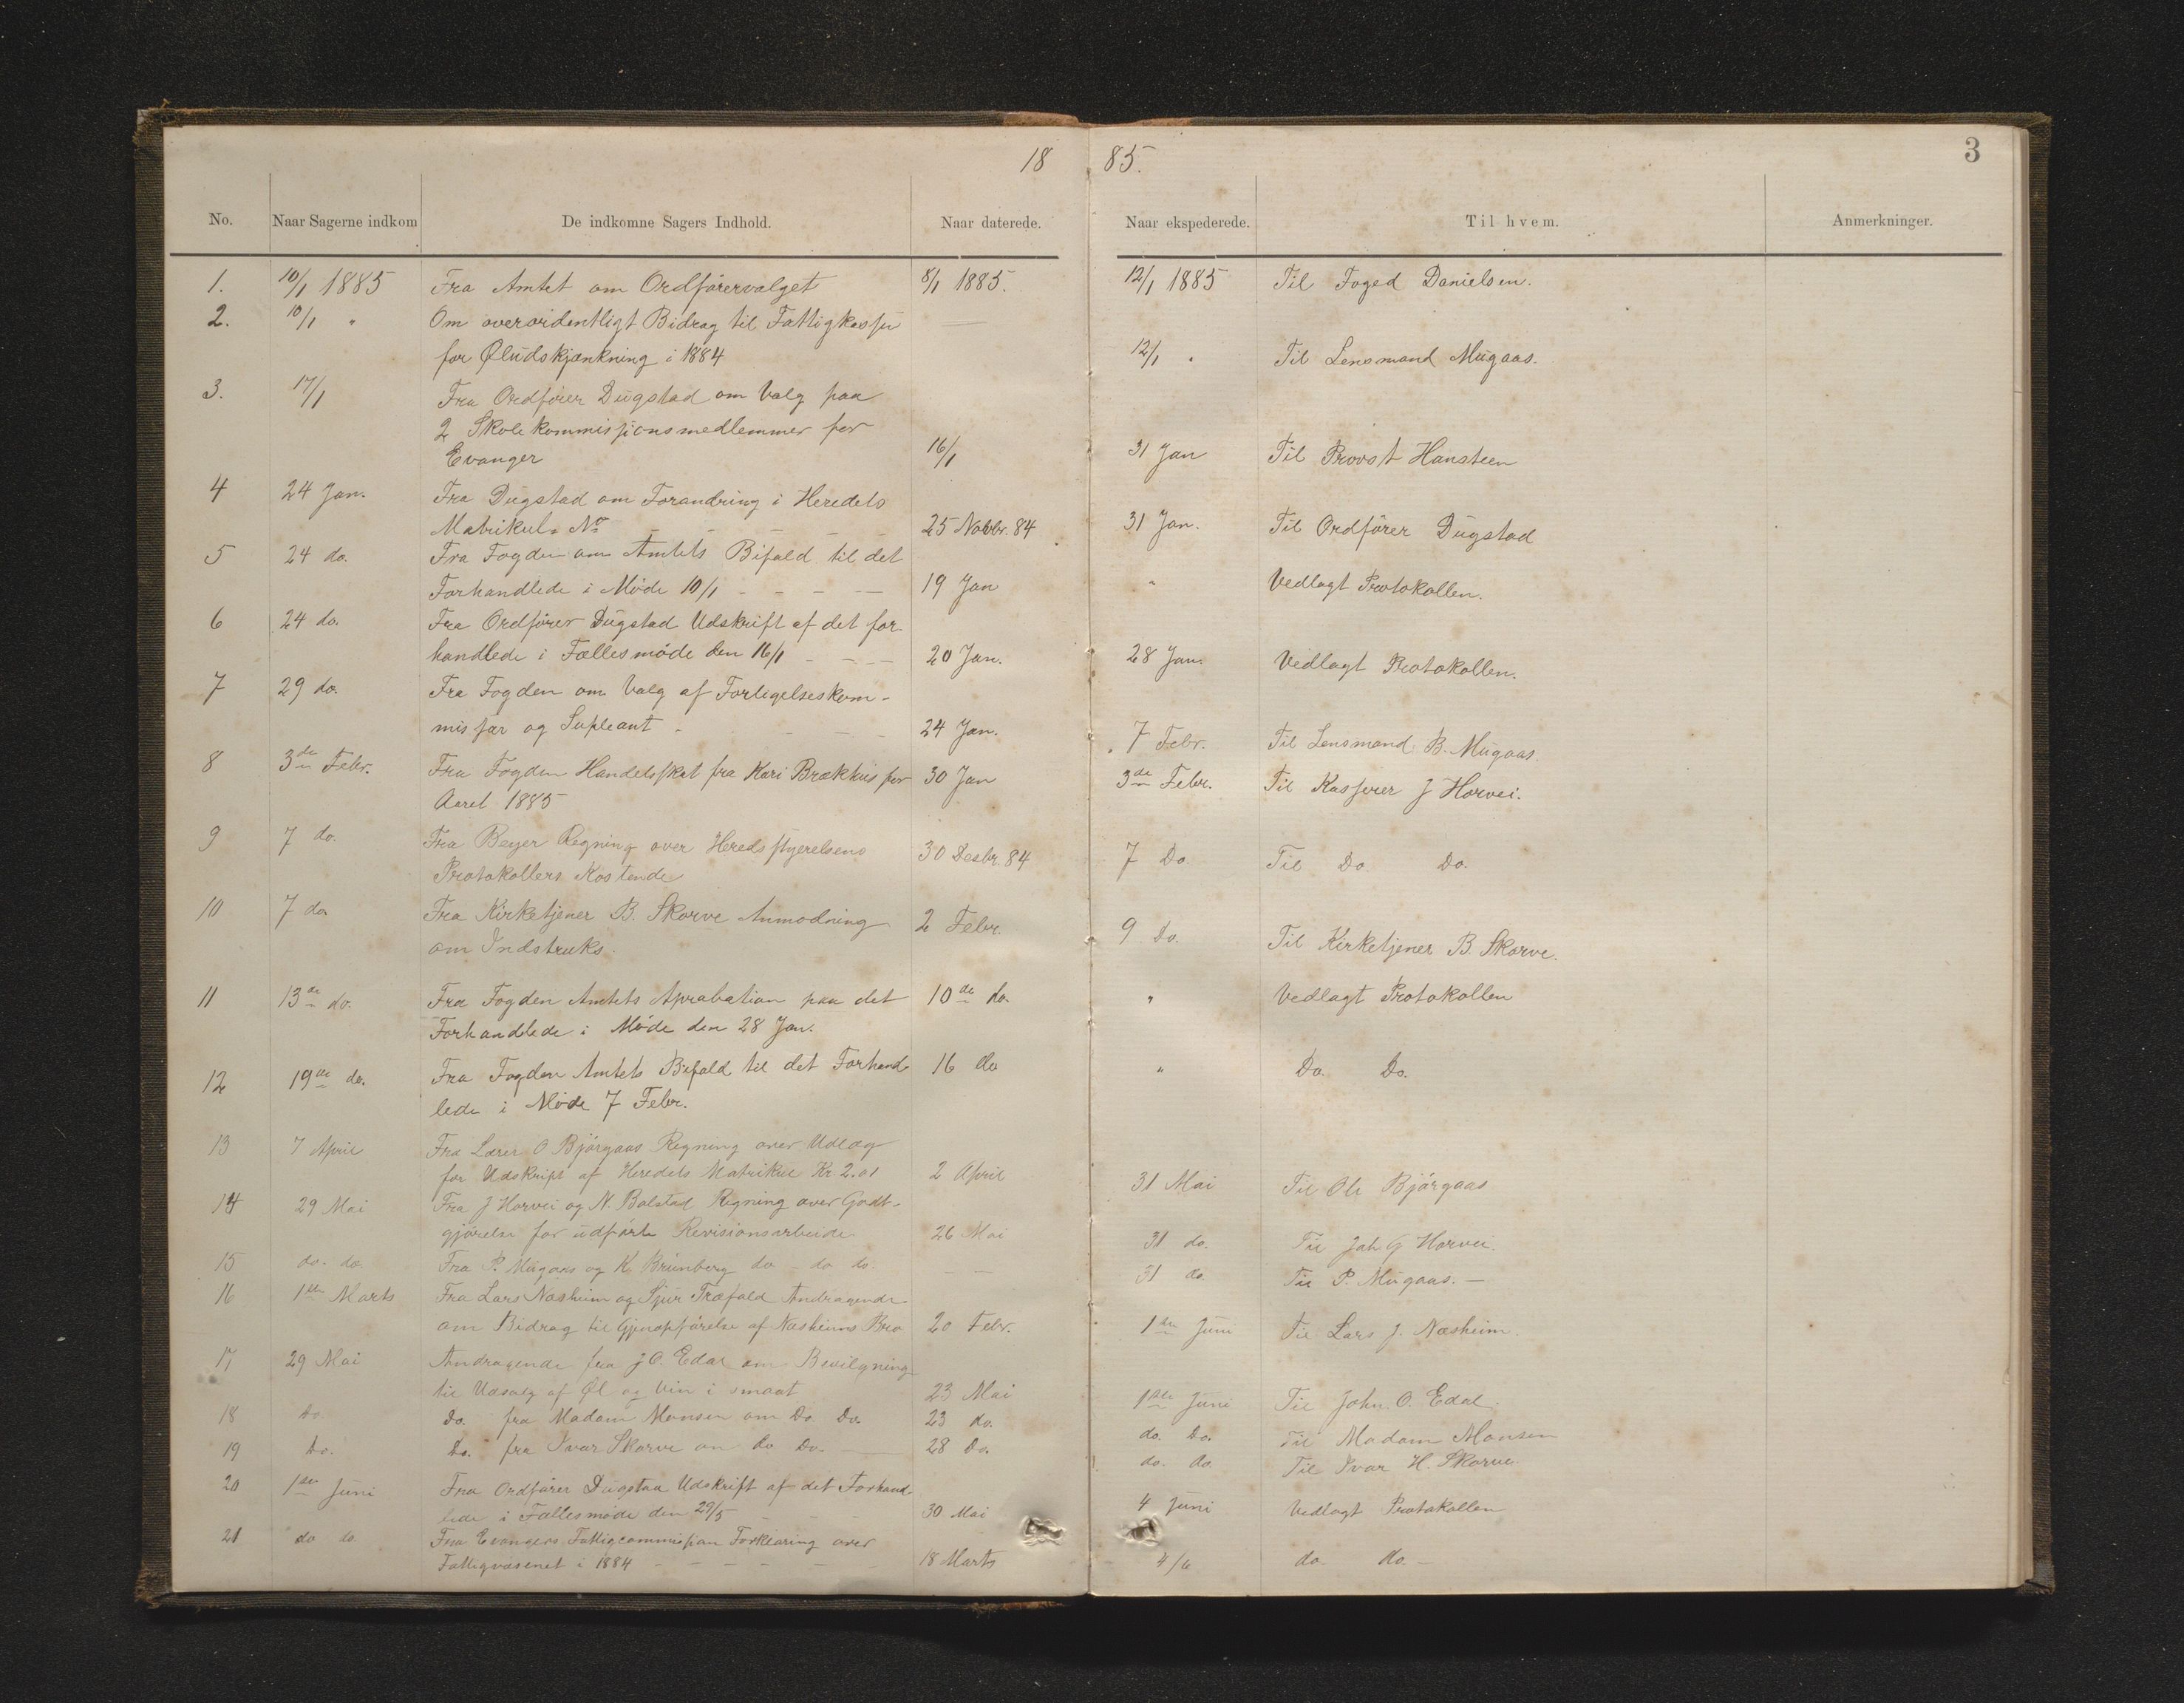 18 85.
3
No. Naar Sagerne indkom De indkomne Sagers Indhold. Naar daterede. Naar ekspederede. Til hvem. Anmerkninger.
1. 10/1 1885 Fra Amtet om Ordførervalget 8/1 1885. 12/1 1885 Til Foged Danielsen.
2. 10/1 " Om overordentligt Bidrag til Fattigkassen —
for Øludskjænkning i 1884 12/1 " Til Lensmand Mugaas.
3. 17/1 Fra Ordfører Dugstad om Valg paa
2 Skolekommissionsmedlemmer for
Evanger 16/1 31 Jan Til Provst Hansteen
4 24 Jan. Fra Dugstad om Forandring i Heredets
Matrikul. No — — — — 25 Novbr. 84 31 Jan. Til Ordfører Dugstad
5 24 do. Fra Fogden om Amtets Bifald til det
Forhandlede i Møde 10/1 - - - — 19 Jan " Vedlagt Protokollen.
6 24 do. Fra Ordfører Dugstad Udskrift af det for
handlede i Fællesmøde den 16/1 - - - 20 Jan. 28 Jan. Vedlagt Protokollen.
7 29 do. Fra Fogden om Valg af Forligelseskom-
missær og Supleant - - - - 24 Jan. 7 Febr. Til Lensmand B. Mugaas
8 3de Febr. Fra Fogden Handelsskat fra Kari Brækhus for 30 Jan 3de Febr. Til Kasserer J Horvei.
Aaret 1885
9 7 do. Fra Beyer Regning over Heredsstyrelsens 30 Desbr. 84 7 Do. Til Do Do.
Protokollers Kostende
10 7 do. Fra Kirketjener B. Skorve Anmodning 2 Febr. 9 Do. Til Kirketjener B. Skorve.
om Indstruks.
11 13de do. Fra Fogden Amtets Aprobation paa det 10de do. " Vedlagt Protokollen
Forhandlede i Møde den 28 Jan.
12 19de do. Fra Fogden Amtets Bifald til det Forhand- 16 do " Do. Do.
lede i Møde 7 Febr.
13 7 April Fra Lærer O Bjørgaas Regning over Udlæg
for Udskrift af Heredets Matrikul Kr. 2.01 2 April 31 Mai Til Ole Bjørgaas
14 29 Mai Fra J Horvei og N. Bolstad Regning over Godt-
gjørelse for udførte Revisionsarbeide 26 Mai 31 do. Til Joh G Horvei.
15 do. do. Fra P. Mugaas og K. Brunberg do - do do. — — 31 do. Til P. Mugaas. —
16 1ste Marts Fra Lars Næsheim og Sjur Træfald Andragende
om Bidrag til Gjenopførelse af Næsheims Bro 20 Febr. 1ste Juni Til Lars J. Næsheim.
17 29 Mai Andragende fra J O. Edal om Bevilgning
til Udsalg af Øl og Vin i smaat 23 Mai 1ste Juni Til John. O. Edal.
18 Do. Do. fra Madam Monsen om Do. Do. 23 do. do. Do. Til Madam Monsen
19 Do. Do. fra Ivar Skorve om do Do. — 28 Do. do. do. Til Ivar H. Skorve.
20 1ste Juni Fra Ordfører Dugstad Udskrift af det Forhand
lede i Fællesmøde den 29/5 - - - 30 Mai 4 Juni Vedlagt Protokollen
21 do do. Fra Evangers Fattigcommission Forklaring over
Fattigvæsenet i 1884 - - - - - 18 Marts 4/6 do do. —